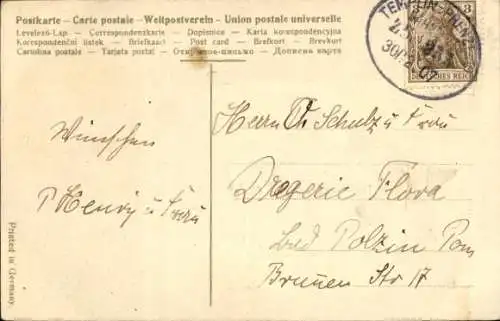 Postkarte - Carte postale - Weltpostverein - Union postale universelle
Levelező-Lap. — Correspondenzkarte — Dopisnice — Karta korespondencyjna
Korespondenční lístek — Briefkaart — Post card — Brefkort — Brevkort
Cartolina postale — Tarjeta postal — Открытое письмо — Дописна карта
3
DEUTSCHES REICH
Wünschen
P Henry u Frau
Herrn Th Schulz u Frau
Drogerie Flora
Bad Polzin Pom
Brunnen Str 17
Printed in Germany